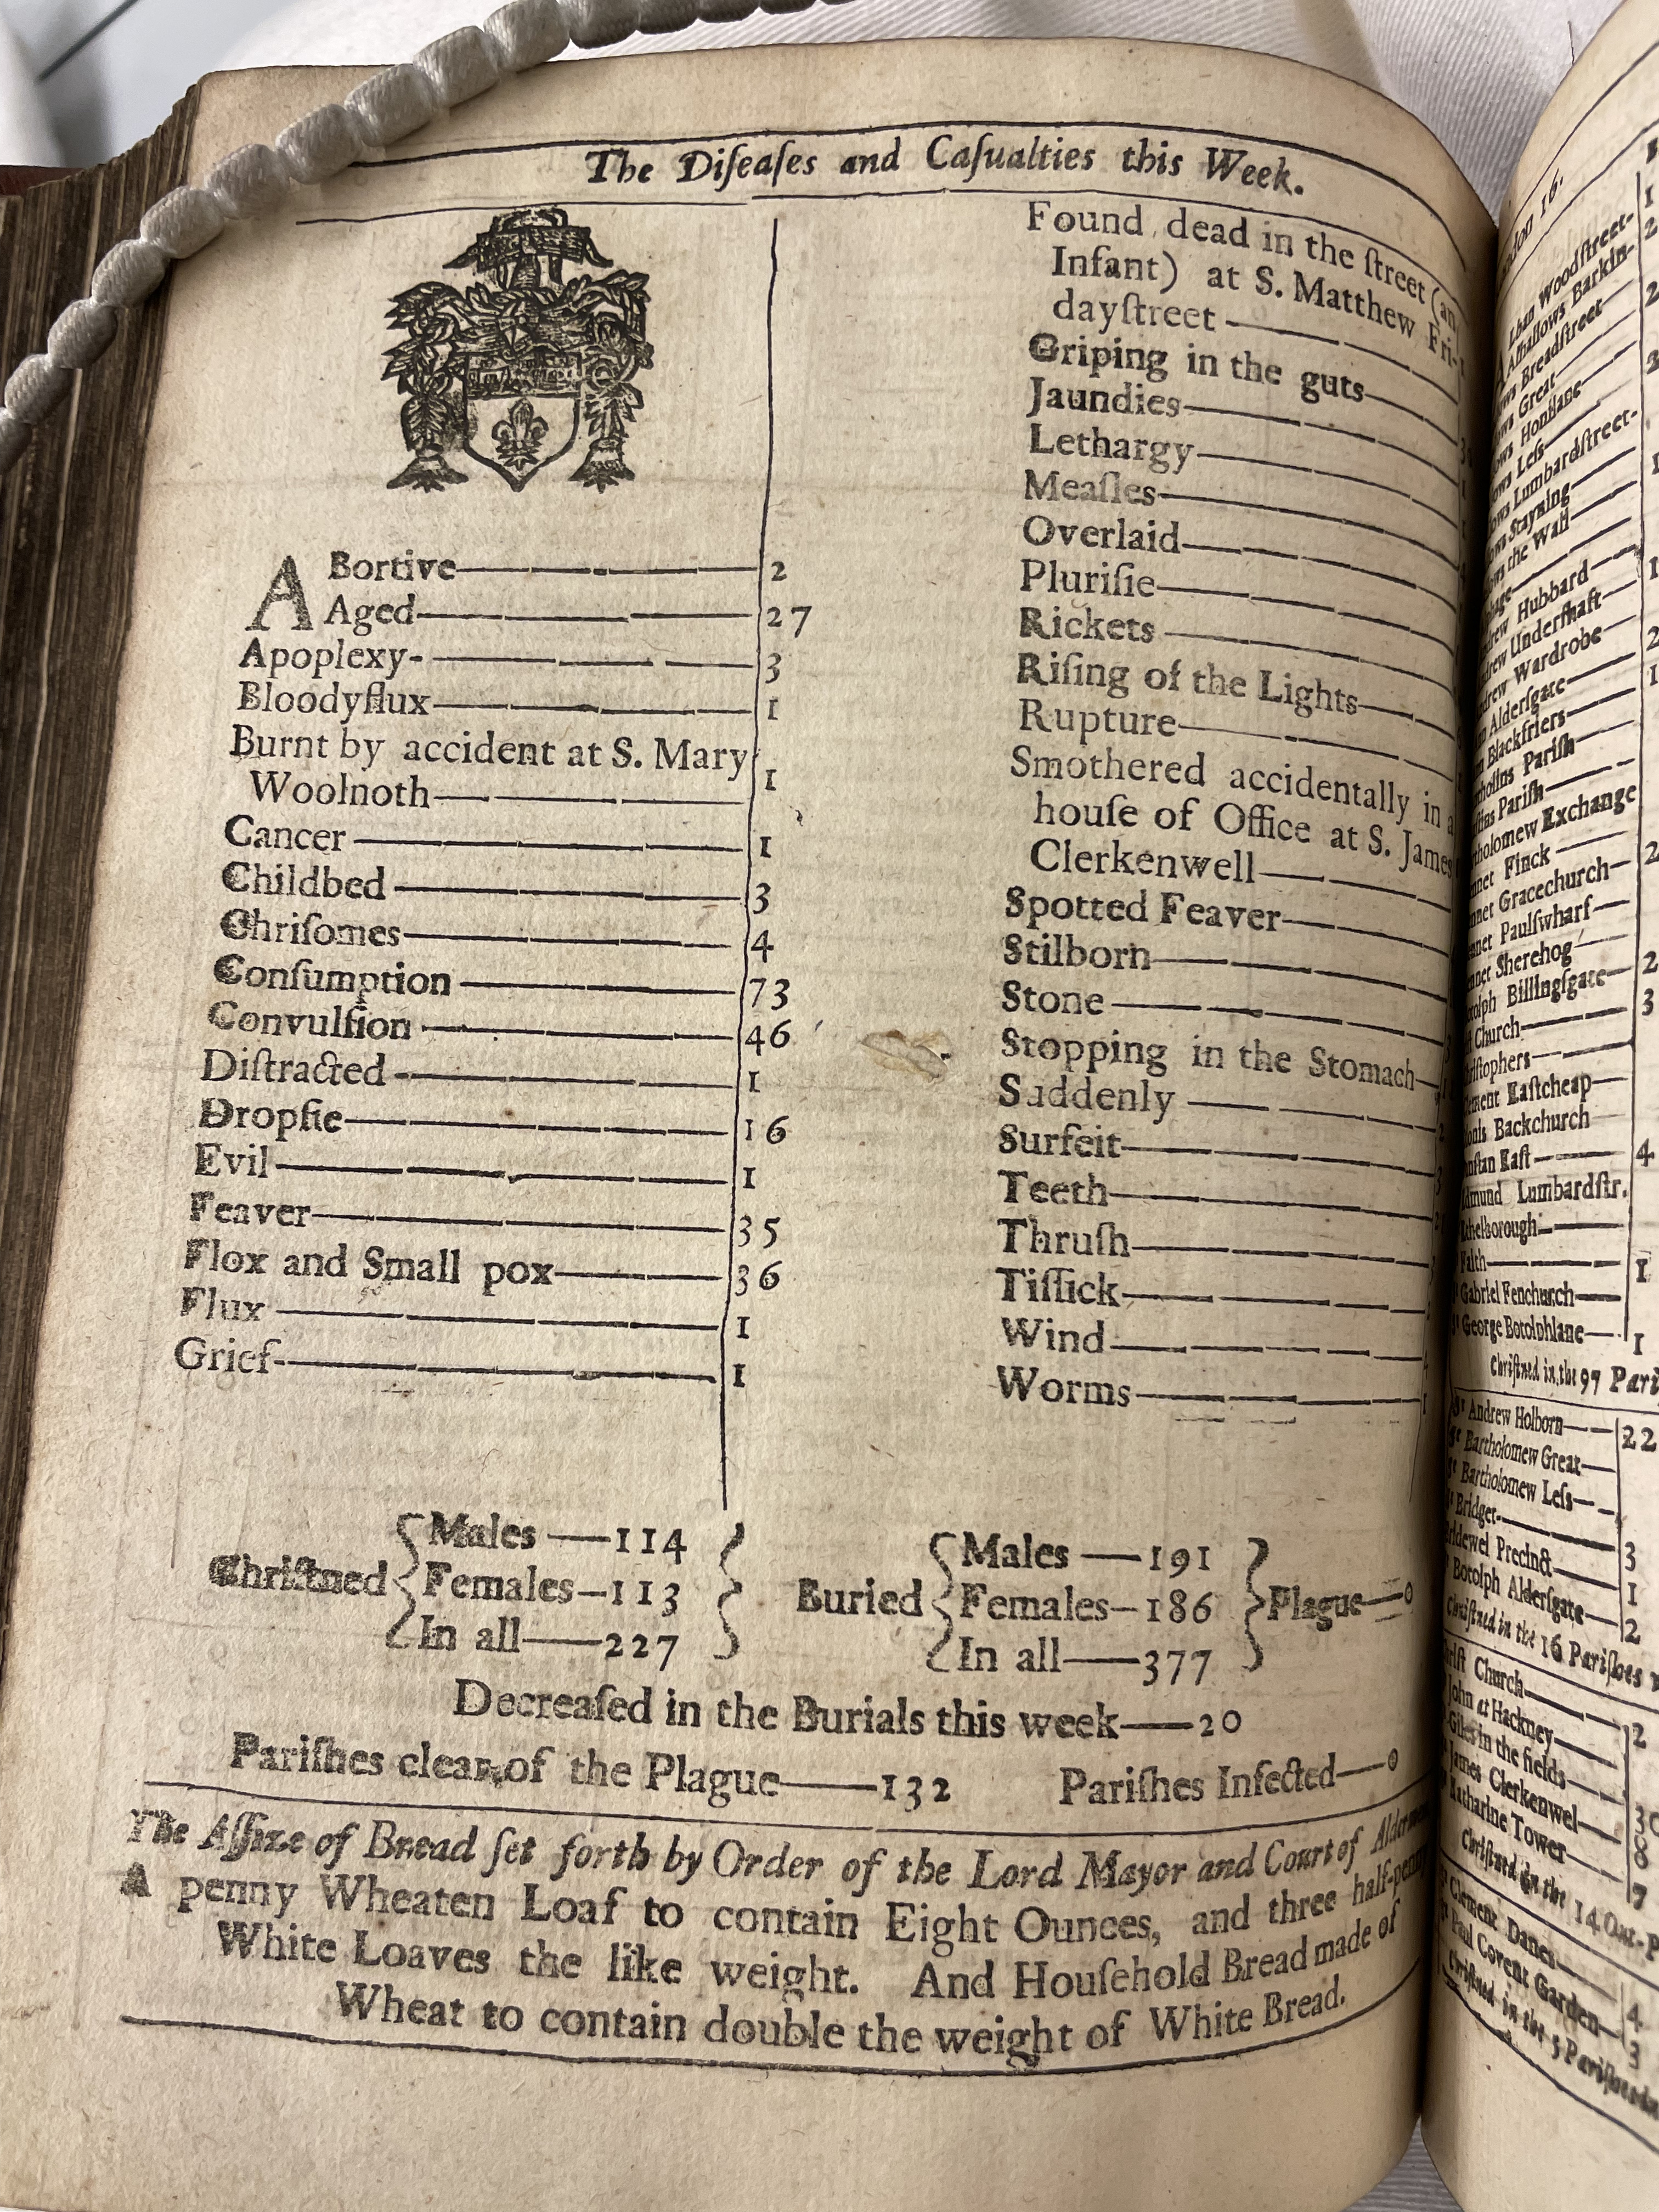 The Diſeaſes and Caſualties this Week.
ABortive 2
Aged 27
Apoplexy 3
Bloodyflux 1
Burnt by accident at S. Mary
Woolnoth 1
Cancer 1
Childbed 3
Chriſomes 4
Conſumption 73
Convulſion 46
Diſtracted 1
Dropſie 16
Evil 1
Feaver 35
Flox and Small pox 36
Flux 1
Grief 1
Found dead in the ſtreet (an
Infant) at S. Matthew Fri-
dayſtreet
Griping in the guts
Jaundies
Lethargy
Meaſles
Overlaid
Pluriſie
Rickets
Riſing of the Lights
Rupture
Smothered accidentally in a
houſe of Office at S. James
Clerkenwell
Spotted Feaver
Stilborn
Stone
Stopping in the Stomach
Suddenly
Surfeit
Teeth
Thruſh
Tiſſick
Wind
Worms
Chriſtned
Males — 114
Females — 113
In all — 227
Buried
Males — 191
Females — 186
In all — 377
Plague — 0
Decreaſed in the Burials this week — 20
Pariſhes clear of the Plague — 132 Pariſhes Infected — 0
The Aſſize of Bread ſet forth by Order of the Lord Mayor and Court of Aldermen
A penny Wheaten Loaf to contain Eight Ounces, and three half-penny
White Loaves the like weight. And Houſehold Bread made of
Wheat to contain double the weight of White Bread.
Woodſtreet
Barkin
Breadſtreet 2
Great
Honilane
Leſs
Lumbardſtreet
Stayning
the Wall
Hubbard
Underſhaft
Wardrobe
Alderſgate
Blackfriers
Pariſh
Pariſh
Exchange
Finck
Gracechurch 2
Paulſwharf
Sherehog
Billingſgate 2
Church 3
Eaſtcheap
Backchurch
Eaſt 4
Lumbardſtr.
Faith 1
Gabriel Fenchurch
George Botolphlane 1
Chriſtned in the 97 Pari
Andrew Holborn 22
Bartholomew Great
Bartholomew Leſs
Bridget 3
Precinct 1
Botolph Alderſgate 2
Chriſtned in the 16 Pariſhes
Church 2
John at Hackney
Giles in the fields 30
James Clerkenwel 8
Katharine Tower 7
Chriſtned in the 14 Out-P
Clement Danes 4
Paul Covent Garden 3
Chriſtned in the 5 Pariſhes